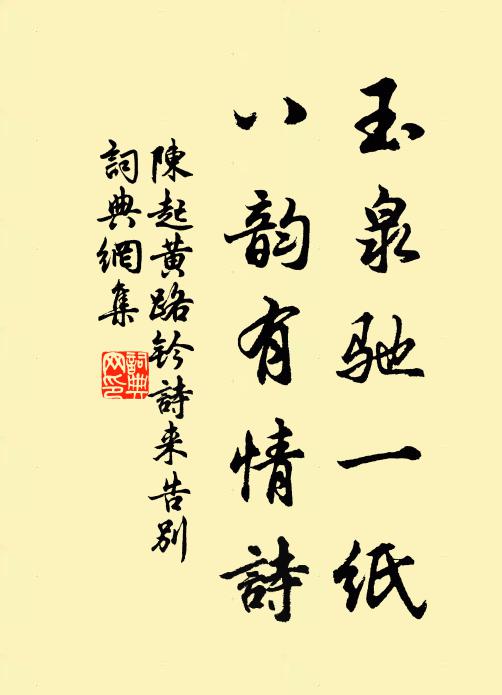 玉泉驰一纸
八韵有情詩
陳起黄路鈐詩来告别
詞典網集
詞典网印